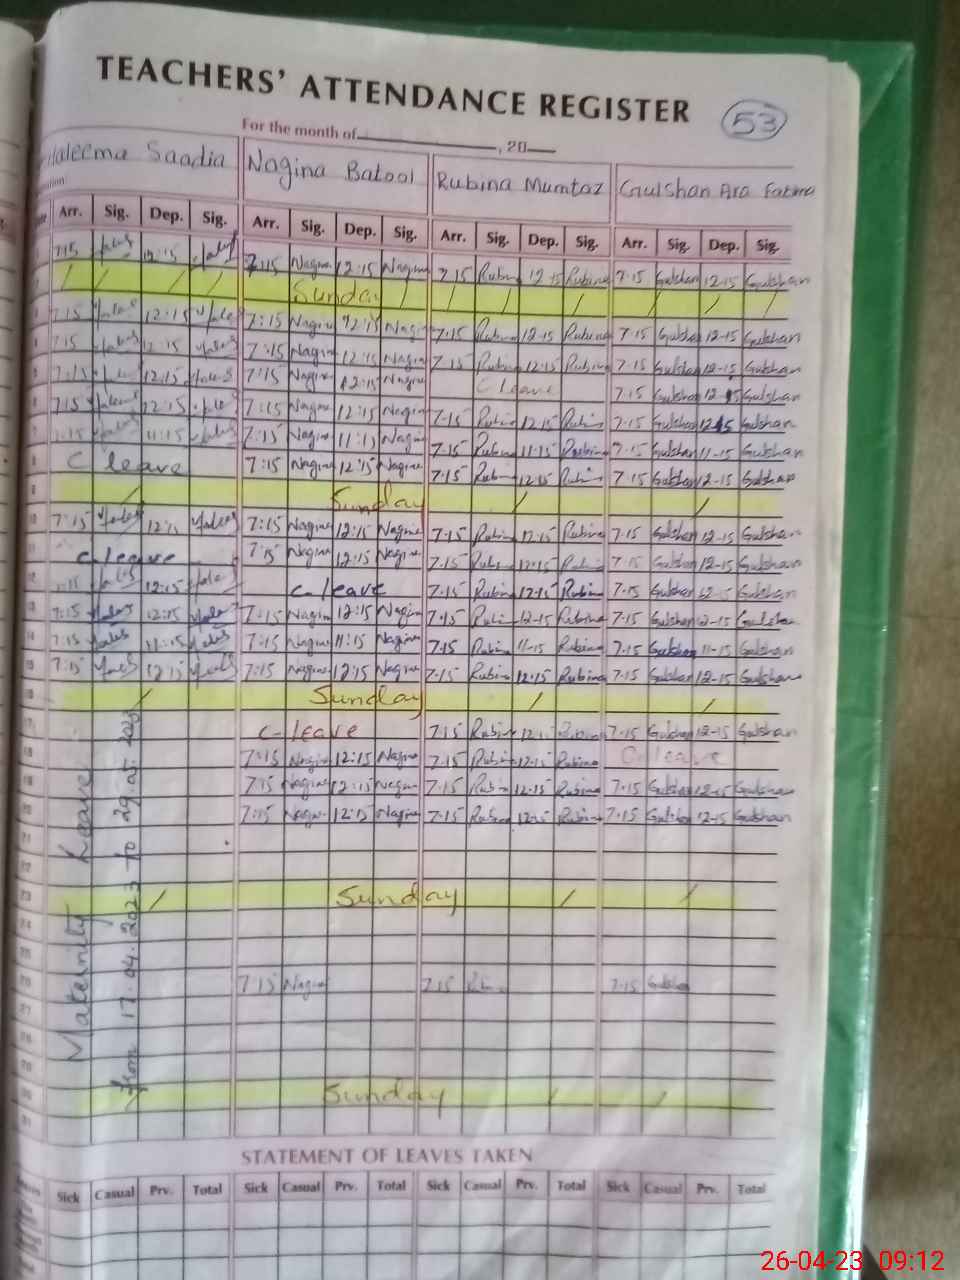 TEACHERS' ATTENDANCE REGISTER
53
For the month of , 20
Haleema Saadia Nagina Batool Rubina Mumtaz Gulshan Ara Fatima
Arr. Sig. Dep. Sig. Arr. Sig. Dep. Sig. Arr. Sig. Dep. Sig. Arr. Sig. Dep. Sig.
7:15 12:15 7:15 Nagina 12:15 Nagina 7.15 Rubina 12.15 Rubina 7.15 Gulshan 12-15 Gulshan
/ / / / Sunday / / / / / / / /
7:15 12:15 7:15 Nagina 12:15 Nagina 7.15 Rubina 12-15 Rubina 7.15 Gulshan 12-15 Gulshan
7:15 12:15 7:15 Nagina 12:15 Nagina 7.15 Rubina 12.15 Rubina 7.15 Gulshan 12-15 Gulshan
7:15 12:15 7:15 Nagina 12:15 Nagina C leave 7.15 Gulshan 12-15 Gulshan
7:15 12:15 7:15 Nagina 12:15 Nagina 7-15 Rubina 12.15 Rubina 7.15 Gulshan 12-15 Gulshan
7:15 11:15 7:15 Nagina 11:15 Nagina 7-15 Rubina 11-15 Rubina 7-15 Gulshan 11-15 Gulshan
C leave 7:15 Nagina 12:15 Nagina 7.15 Rubina 12.15 Rubina 7.15 Gulshan 12-15 Gulshan
/ Sunday / /
7:15 12:15 7:15 Nagina 12:15 Nagina 7.15 Rubina 12-15 Rubina 7.15 Gulshan 12-15 Gulshan
c-leave 7:15 Nagina 12:15 Nagina 7.15 Rubina 12.15 Rubina 7.15 Gulshan 12-15 Gulshan
7:15 12:15 c-leave 7.15 Rubina 12.15 Rubina 7.15 Gulshan 12-15 Gulshan
7:15 12:15 7:15 Nagina 12:15 Nagina 7.15 Rubina 12-15 Rubina 7.15 Gulshan 12-15 Gulshan
7:15 11:15 7:15 Nagina 11:15 Nagina 7.15 Rubina 11-15 Rubina 7.15 Gulshan 11-15 Gulshan
7:15 12:15 7:15 Nagina 12:15 Nagina 7.15 Rubina 12.15 Rubina 7.15 Gulshan 12-15 Gulshan
/ Sunday / /
c-leave 7.15 Rubina 12.15 Rubina 7.15 Gulshan 12-15 Gulshan
7:15 Nagina 12:15 Nagina 7.15 Rubina 12-15 Rubina C-leave
7:15 Nagina 12:15 Nagina 7.15 Rubina 12.15 Rubina 7.15 Gulshan 12-15 Gulshan
7:15 Nagina 12:15 Nagina 7.15 Rubina 12.15 Rubina 7.15 Gulshan 12-15 Gulshan
Maternity Leave
from 17.04.2023 to 29.07.2023
/ Sunday / /
7:15 Nagina 7.15 Rubina 7.15 Gulshan
Sunday / /
STATEMENT OF LEAVES TAKEN
Sick Casual Prv. Total Sick Casual Prv. Total Sick Casual Prv. Total Sick Casual Prv. Total
26-04-23 09:12